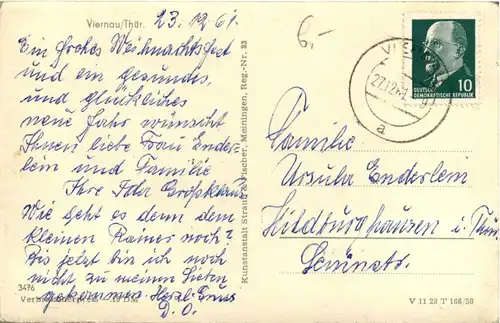 Viernau/Thür.
23.12.61.
6,-
Ein frohes Weihnachtsfest
und ein gesundes
und glückliches
neue Jahr wünscht
Ihnen liebe Frau Ender-
lein und Familie
Ihre Ida
Wie geht es denn dem
kleinen Rainer noch?
Bis jetzt bin ich noch
nicht zu meinen Lieben
gekommen. Herzl. Gruss
D. O.
3476
V 11 28 T 166/58
Kunstanstalt Straub & Fischer, Meiningen, Reg.-Nr. 23
27.12.61
a
10
DEUTSCHE
DEMOKRATISCHE REPUBLIK
Familie
Ursula Enderlein
Hildburghausen i. Thür